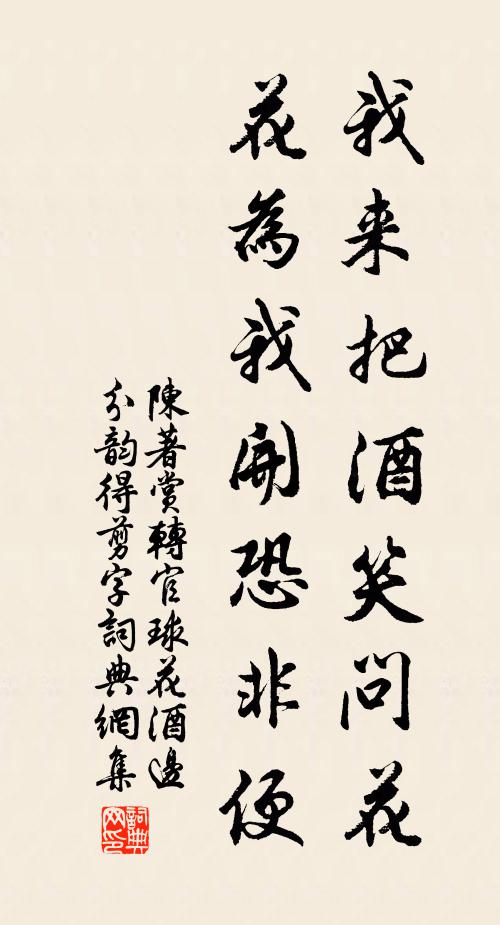 我来把酒笑问花
花為我開恐非便
陳著賞轉官球花酒邊
分韵得剪字詞典網集
詞典网印